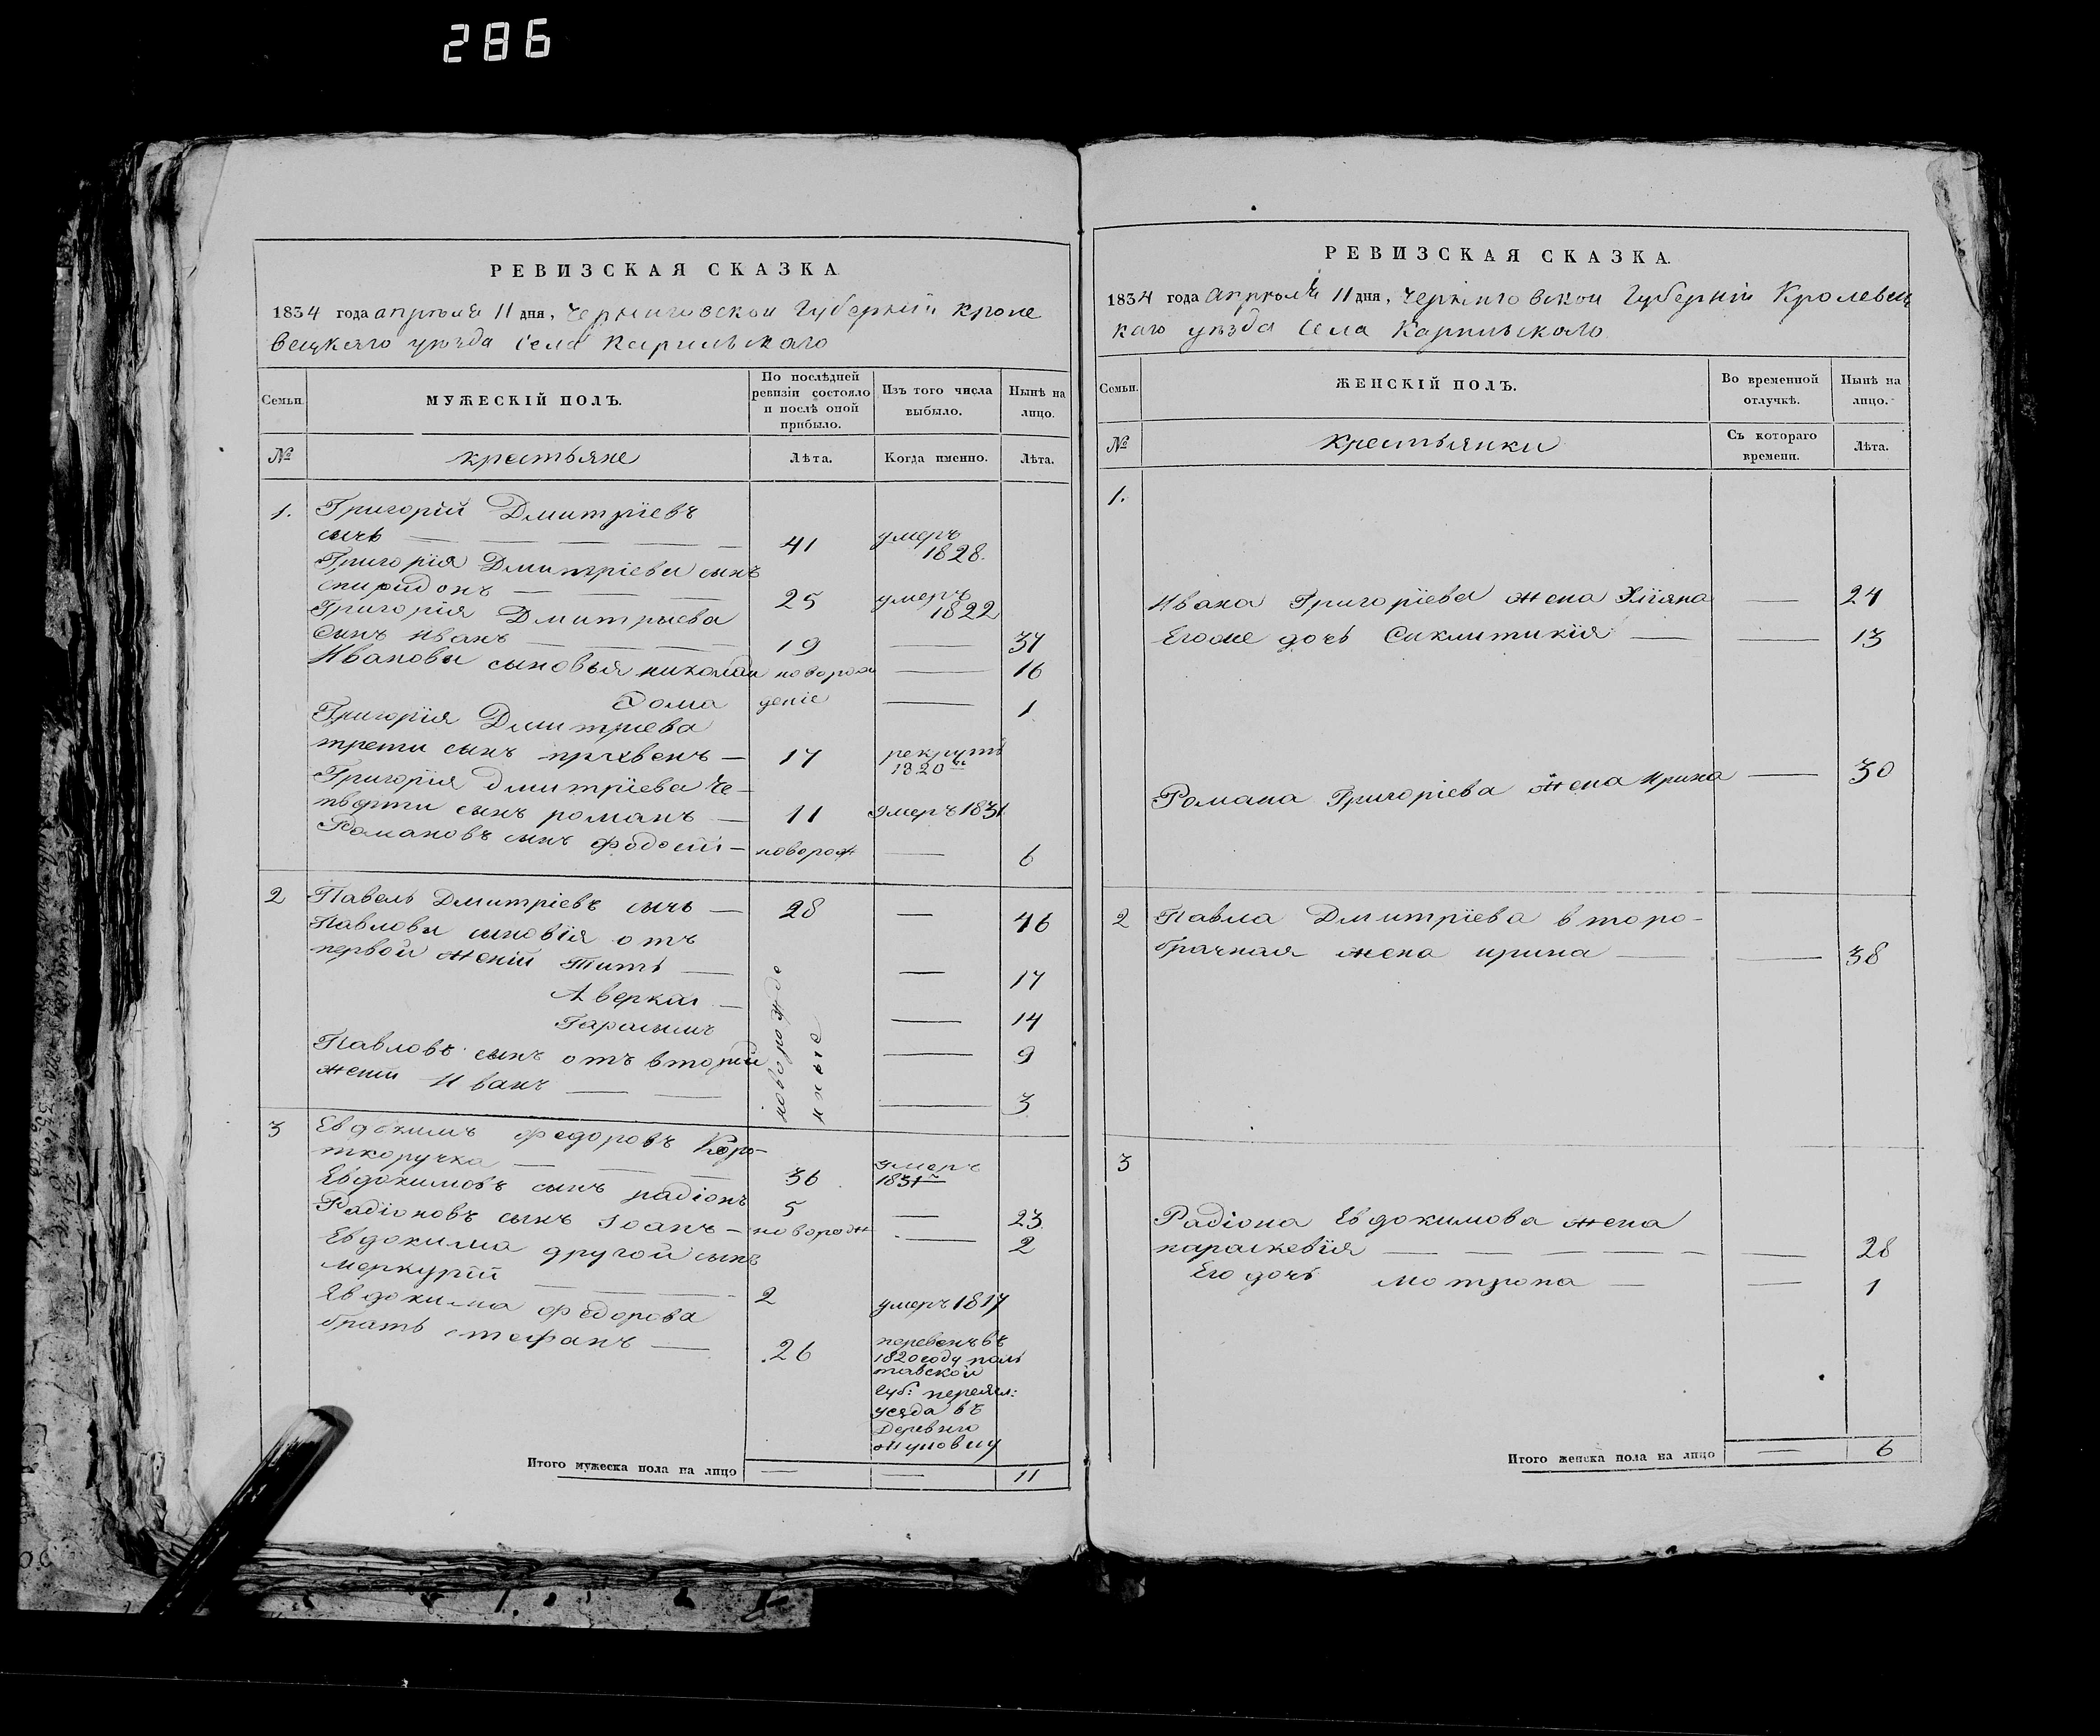 286
РЕВИЗСКАЯ СКАЗКА.
1834 года апреля 11 дня, Черниговской Губернїи Кроле
вецкаго уезда села Карпильскаго
Семьи.
МУЖЕСКІЙ ПОЛЪ.
По послѣдней ревизіи состояло и послѣ оной прибыло.
Изъ того числа выбыло.
Нынѣ на лицо.
№
крестьяне
Лѣта.
Когда именно.
Лѣта.
1. Григорїй Дмитрїевъ
сычъ — 41 умеръ 1828.
Григорїя Дмитрїева сынъ
спиридонъ — 25 умеръ 1822
Григорїя Дмитрыева
Сынъ Иванъ — 19 — 37
Ивановы сыновья николай новорож — 16
Фома денїе — 1
Григорїя Дмитрїева
трети сынъ — 17 рекрутъ 1820
Григорїя дмитрїева че-
тверти сынъ романъ — 11 Умеръ 1831
Романовъ сынъ Федосїй — поворож — 6
2 Павелъ Дмитрїевъ сычъ — 28 — 46
Павловы сыновїя отъ
первой женїй Титъ — — 17
Аверкїй — — 14
Гарасымъ — 9
Павловъ сынъ отъ второй
женїй Иванъ — — 3
новорожде
нные
3 Евдокимъ Федоровъ Коро-
ткоручка — 36 Умеръ 1831
Евдокимовъ сынъ радїонъ 5 — 23
Радїоновъ сынъ Іоанъ — новорож — 2
Евдокима другой сынъ
меркурїй — 2 умеръ 1817
Евдокима Федорова
братъ стефанъ — 26 перевенъ въ
1820 году пол
тавской
губ: переясл:
уезда въ
Деревню
Итого мужеска пола на лицо — — 11
РЕВИЗСКАЯ СКАЗКА.
1834 года апреля 11 дня, Черниговской Губернїи Кролевец
каго уезда села Карпильскаго
Семьи.
ЖЕНСКІЙ ПОЛЪ.
Во временной отлучкѣ.
Нынѣ на лицо.
№
крестьянки
Съ котораго времени.
Лѣта.
1.
Ивана Григорїева жена Улїяна — 24
Егоже дочь Сиклитикїя — — 13
Романа Григорїева жена Ирина — 30
2 Павла Дмитрїева второ-
брачная жена ирина — — 38
3
Радїона Евдокимова жена
параскевїя — — 28
Его дочь мотрона — — 1
Итого женска пола на лицо — 6